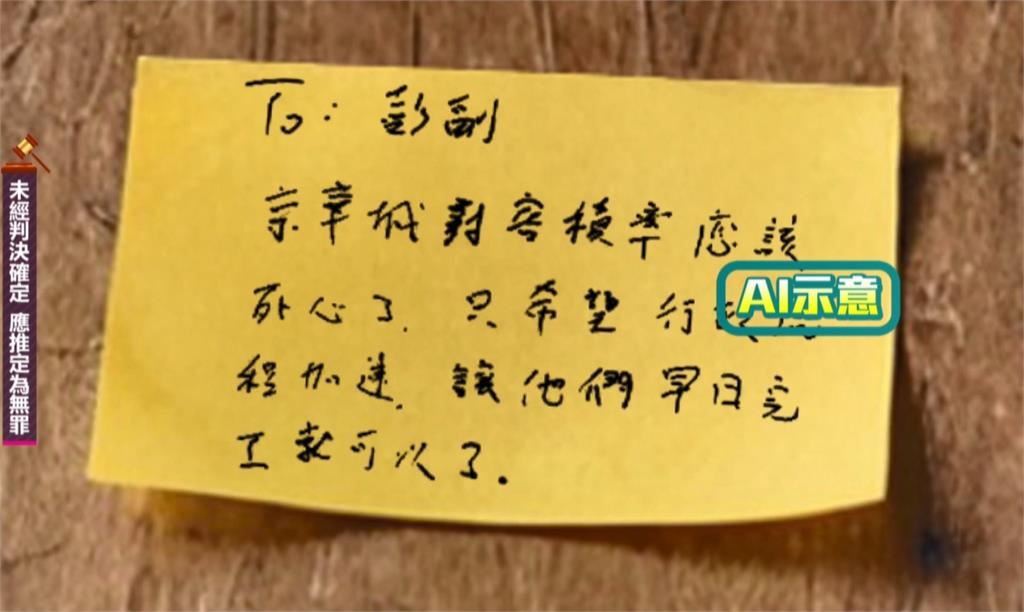 To: 彭副
京華城對容積率應該
死心了. 只希望行
程加速. 讓他們早日完
工就可以了.
AI示意
未經判決確定 應推定為無罪